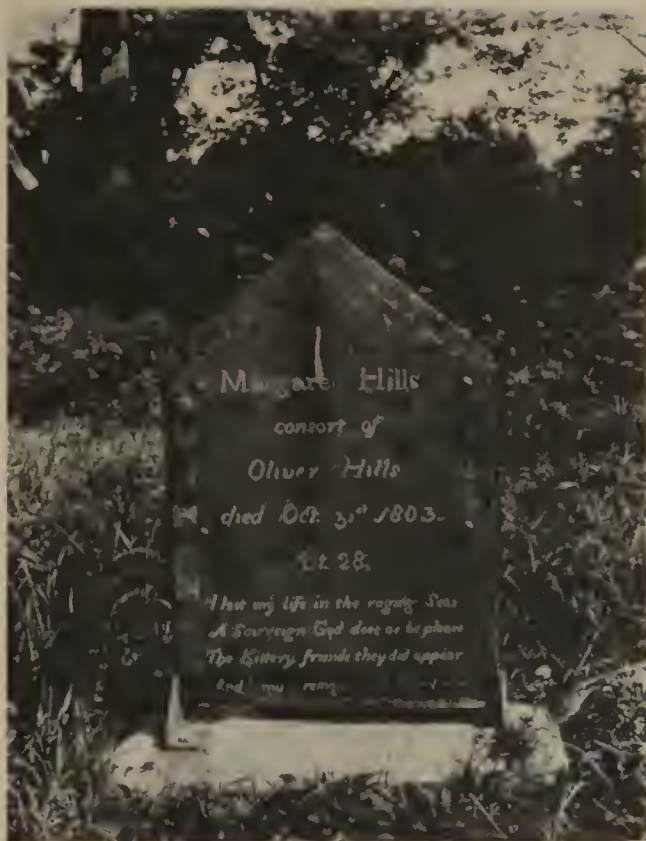 Margaret Hills
consort of
Oliver Hills
died Oct. 31st 1803.
Æt 28,
I lost my life in the raging Seas
A Sovreign God does as he please
The Kittery friends they did appear
And my